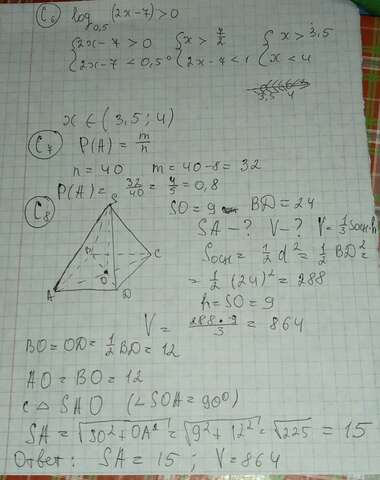 C6 log₀,₅ (2x-7) > 0
{2x-7 > 0 {x > 7/2 {x > 3,5
{2x-7 < 0,5⁰ {2x-7 < 1 {x < 4
3,5 4
x ∈ (3,5; 4)
C7 P(A) = m/n
n = 40 m = 40-8 = 32
P(A) = 32/40 = 4/5 = 0,8
C8 SO = 9 BD = 24
SA - ? V - ? V = 1/3 Sосн·h
Sосн = 1/2 d² = 1/2 BD² =
= 1/2 (24)² = 288
h = SO = 9
V = 288·9/3 = 864
S
A
B
C
D
O
BO = OD = 1/2 BD = 12
AO = BO = 12
с △ SAO (∠SOA = 90°)
SA = √SO² + OA² = √9² + 12² = √225 = 15
Ответ: SA = 15 ; V = 864